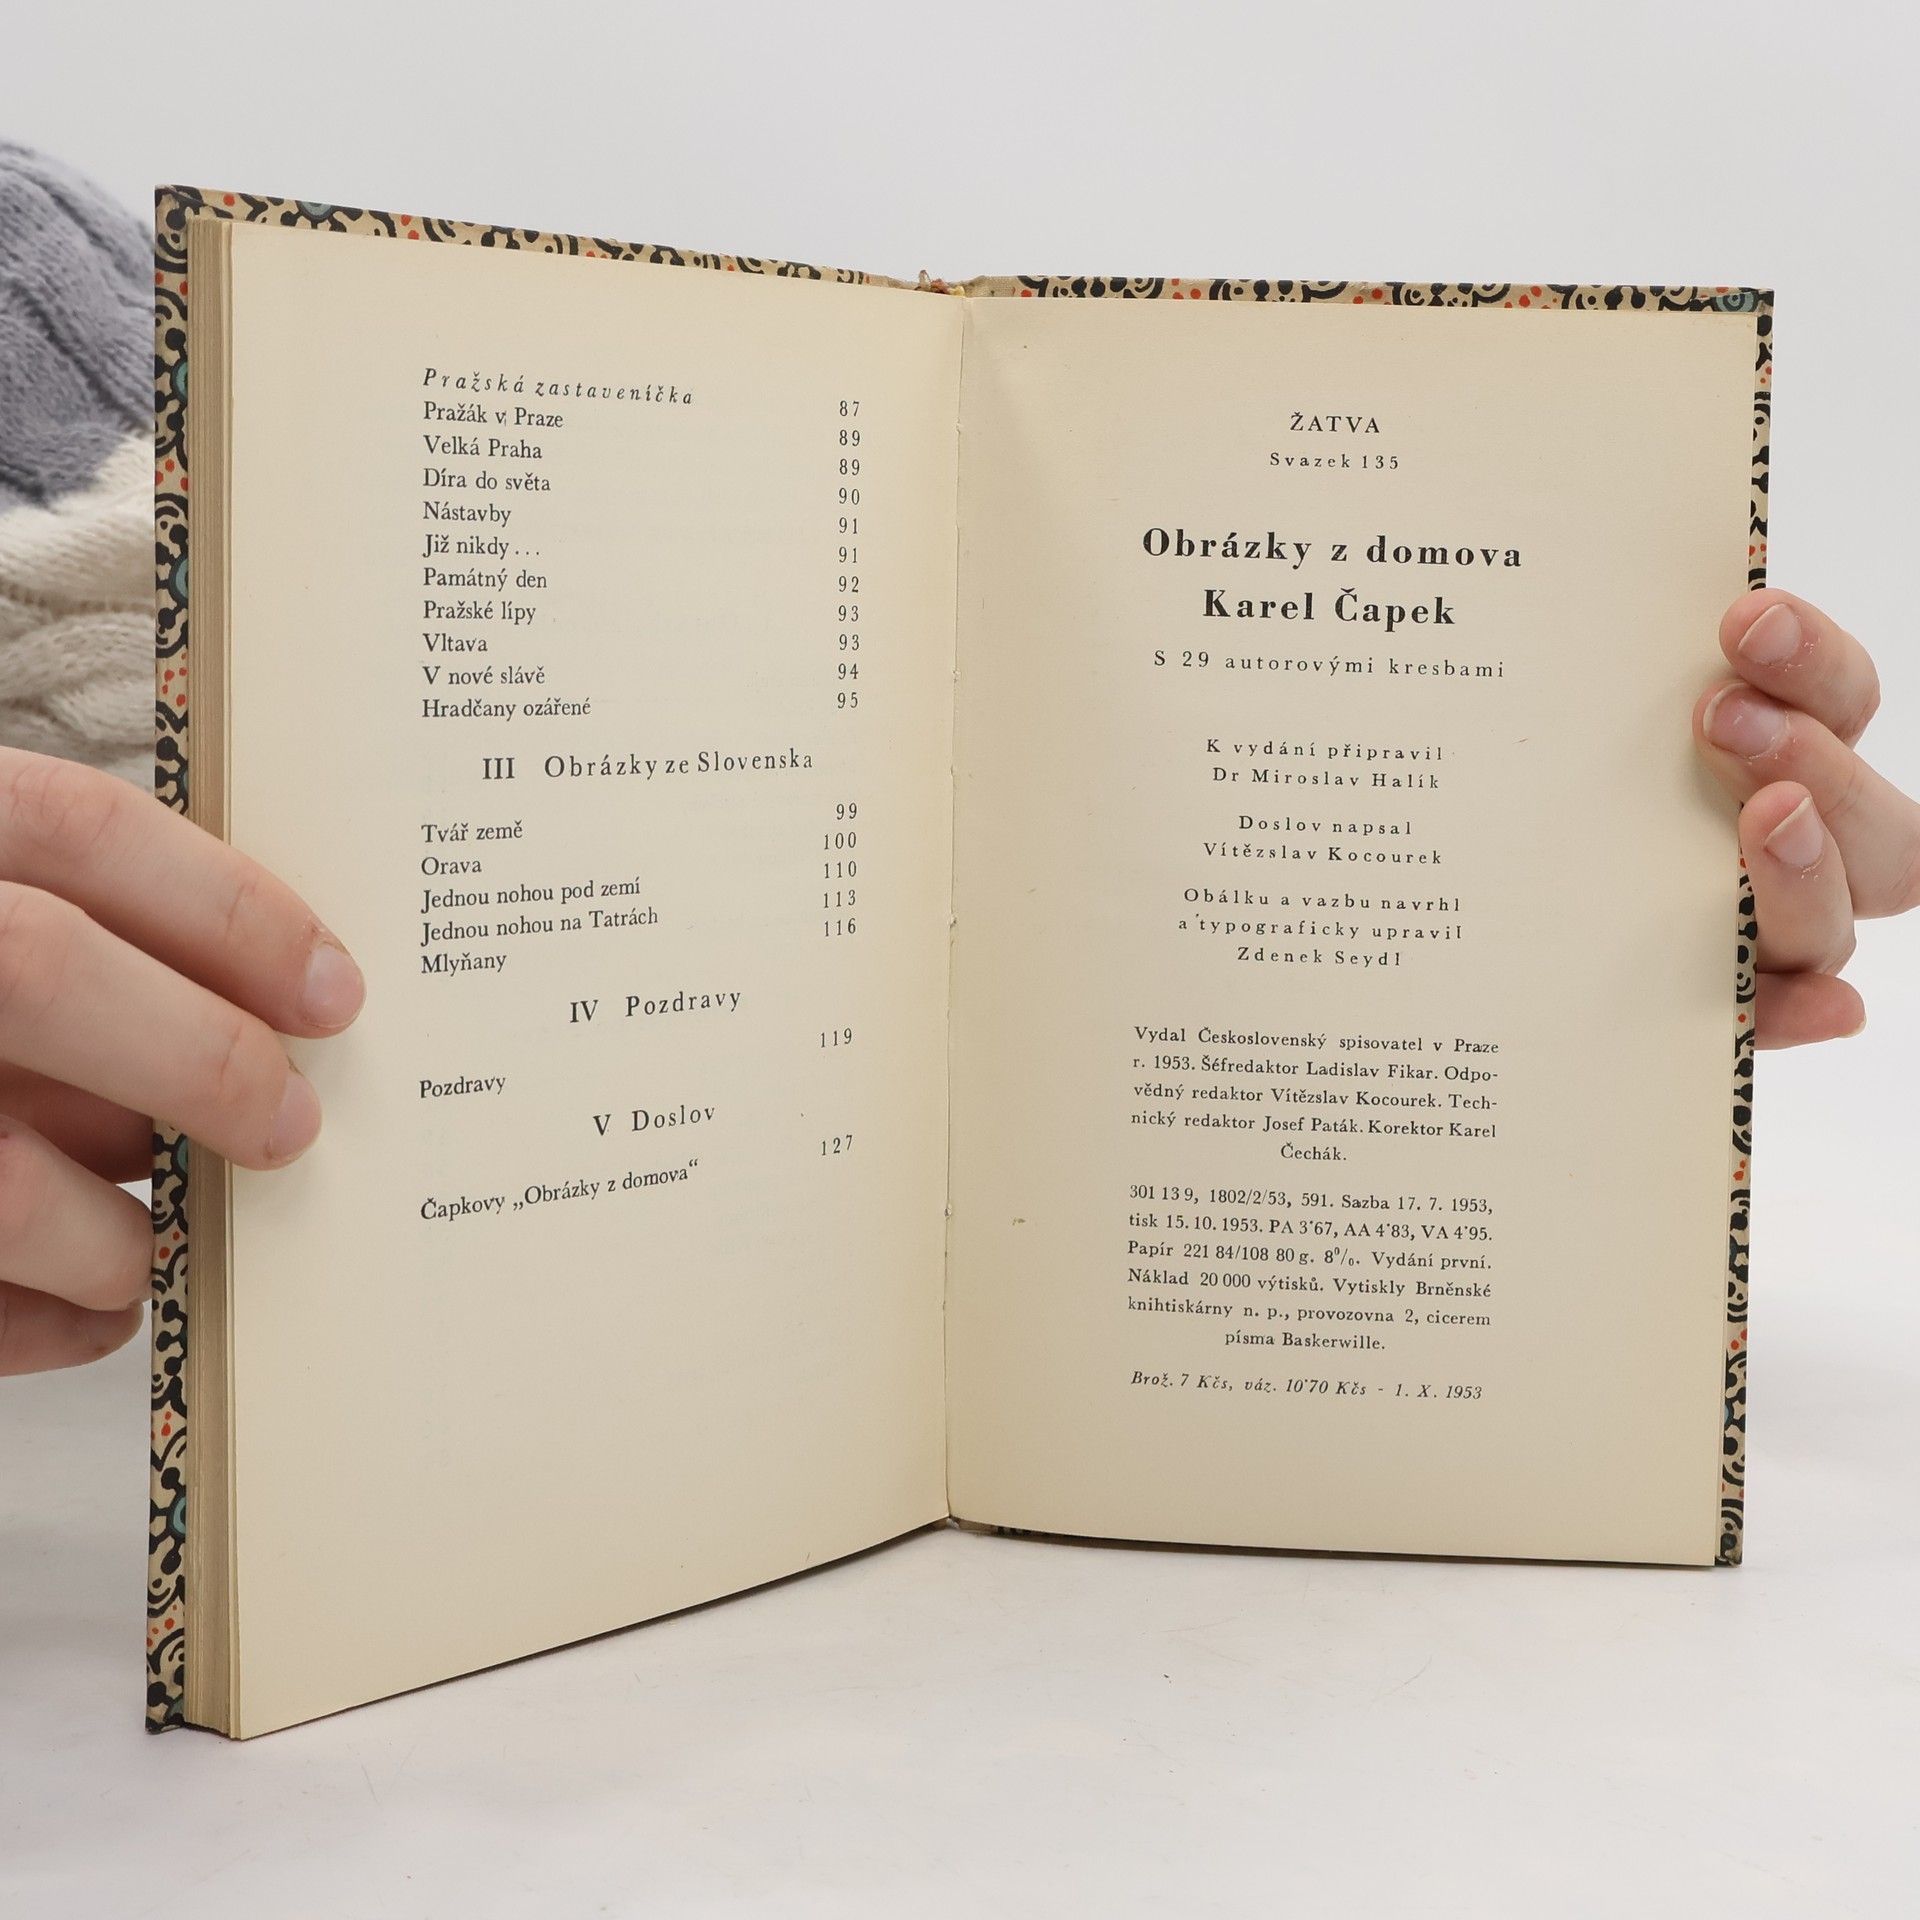 Pražská zastaveníčka 87
Pražák v Praze 89
Velká Praha 89
Díra do světa 90
Nástavby 91
Již nikdy... 91
Památný den 92
Pražské lípy 93
Vltava 93
V nové slávě 94
Hradčany ozářené 95
III Obrázky ze Slovenska
Tvář země 99
Orava 100
Jednou nohou pod zemí 110
Jednou nohou na Tatrách 113
Mlyňany 116
IV Pozdravy
Pozdravy 119
V Doslov
Čapkovy „Obrázky z domova“ 127
ŽATVA
Svazek 135
Obrázky z domova
Karel Čapek
S 29 autorovými kresbami
K vydání připravil
Dr Miroslav Halík
Doslov napsal
Vítězslav Kocourek
Obálku a vazbu navrhl
a typograficky upravil
Zdenek Seydl
Vydal Československý spisovatel v Praze
r. 1953. Šéfredaktor Ladislav Fikar. Odpo-
vědný redaktor Vítězslav Kocourek. Tech-
nický redaktor Josef Paták. Korektor Karel
Čechák.
301 13 9, 1802/2/53, 591. Sazba 17. 7. 1953,
tisk 15. 10. 1953. PA 3˙67, AA 4˙83, VA 4˙95.
Papír 221 84/108 80 g. 8⁰/₀. Vydání první.
Náklad 20 000 výtisků. Vytiskly Brněnské
knihtiskárny n. p., provozovna 2, cicerem
písma Baskerwille.
Brož. 7 Kčs, váz. 10˙70 Kčs - 1. X. 1953